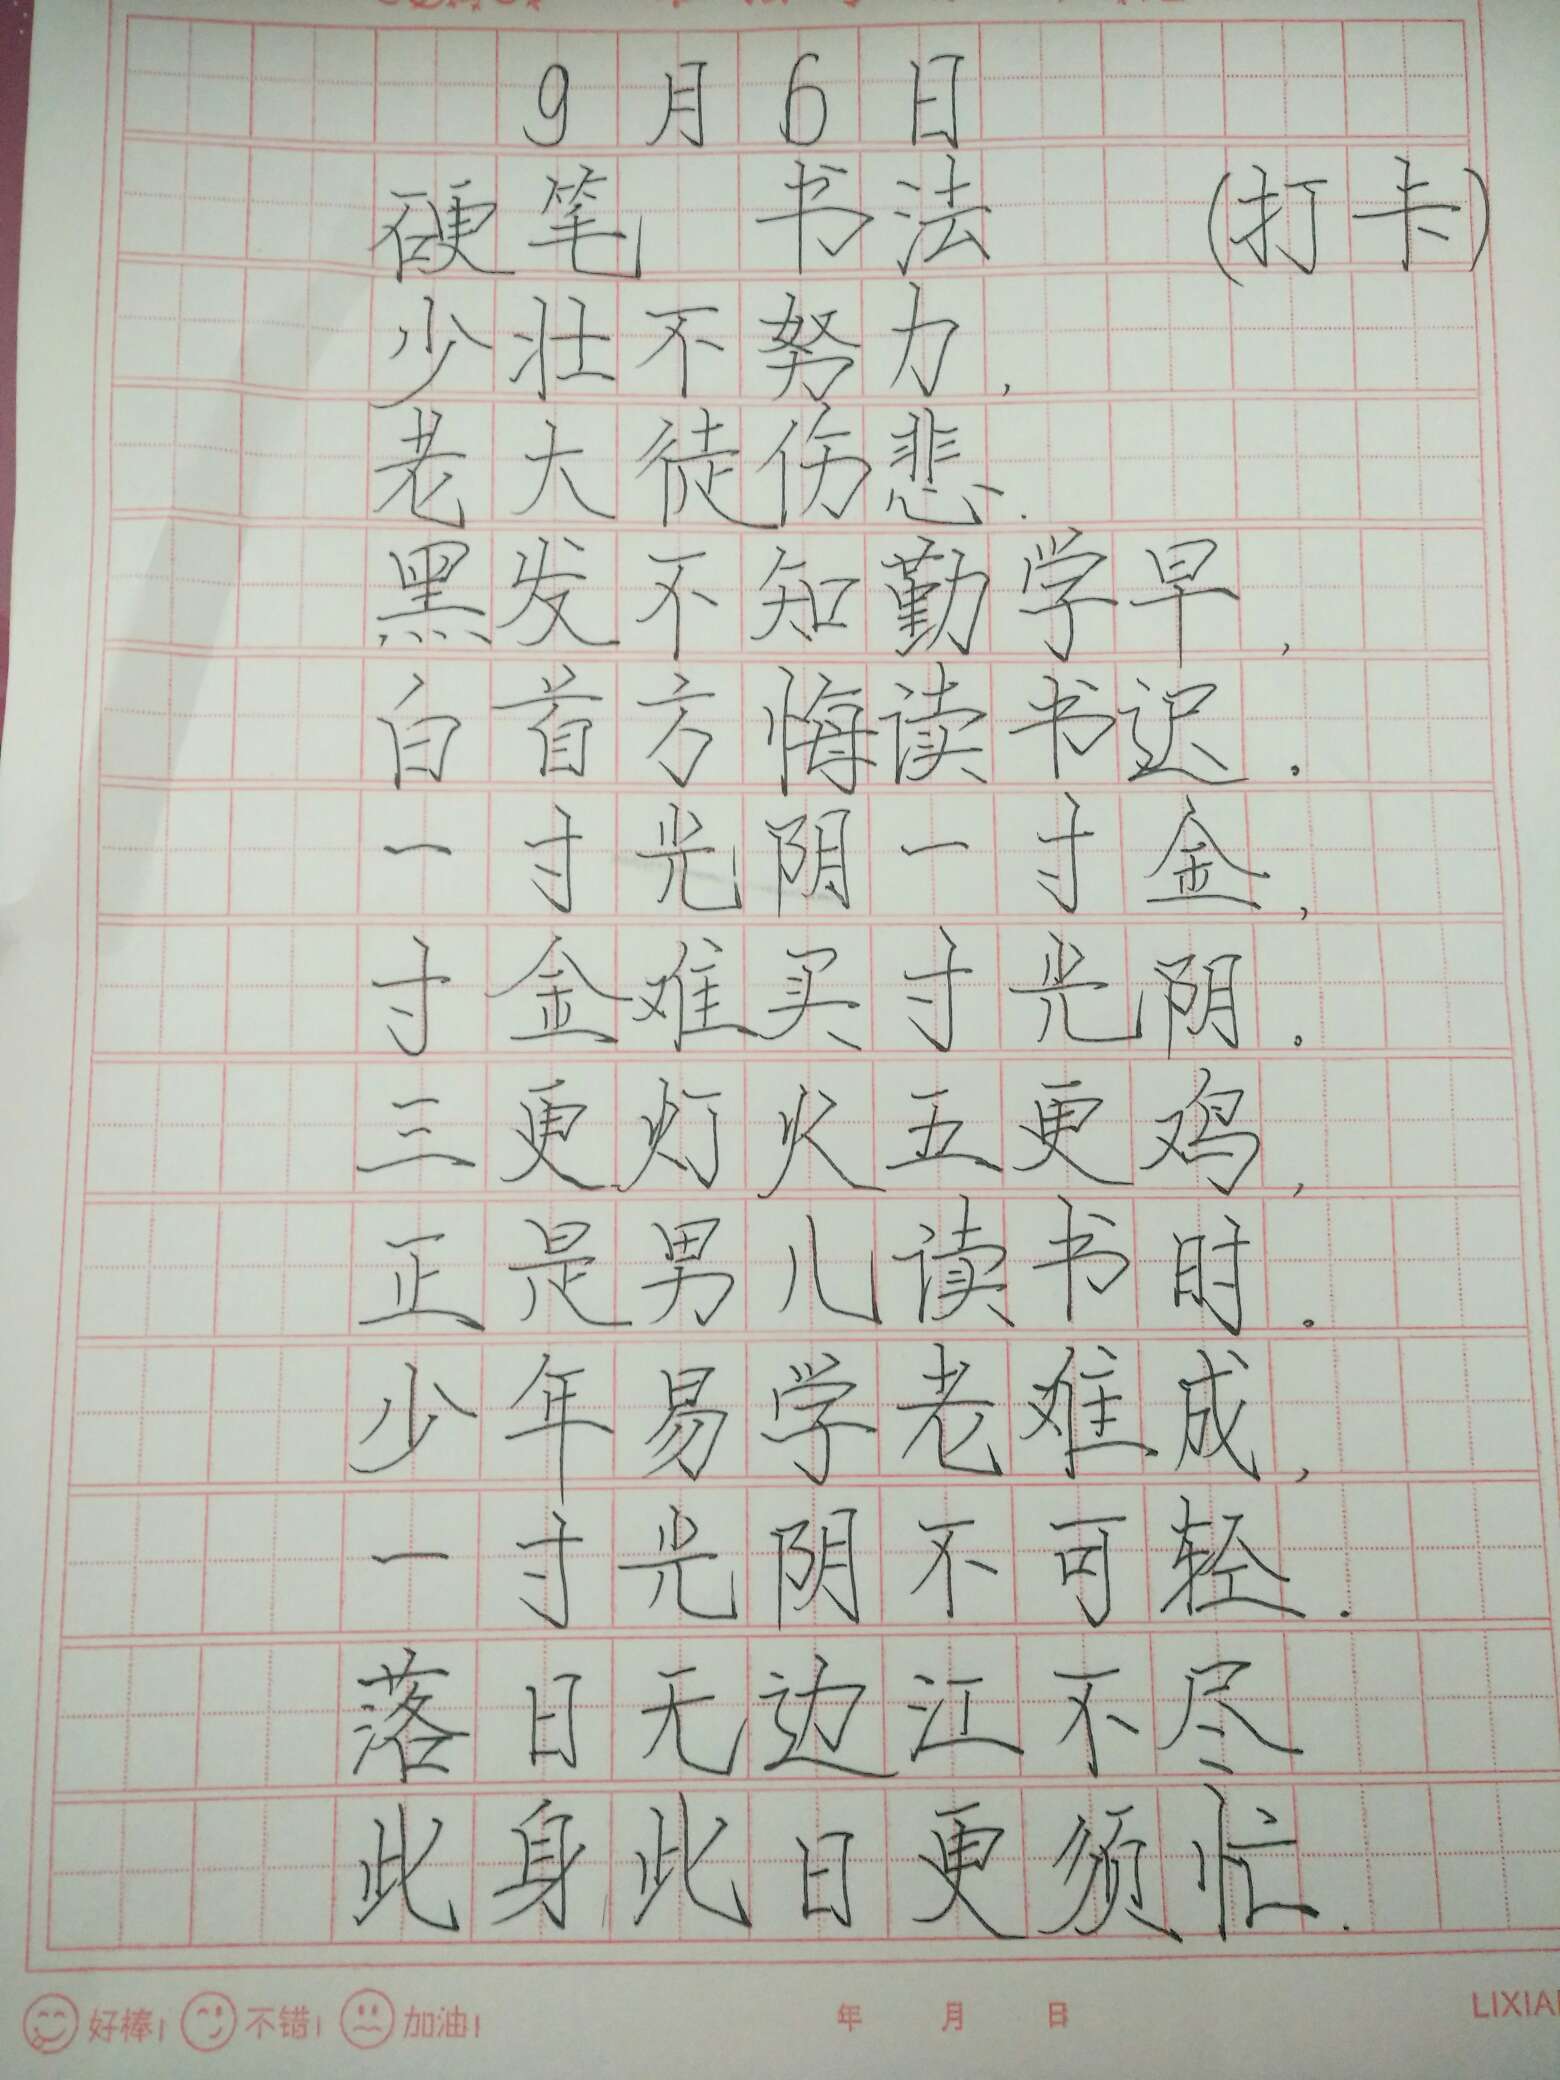 9月6日
硬笔 书法 (打卡)
少壮不努力,
老大徒伤悲.
黑发不知勤学早,
白首方悔读书迟.
一寸光阴一寸金,
寸金难买寸光阴.
三更灯火五更鸡,
正是男儿读书时.
少年易学老难成,
一寸光阴不可轻.
落日无边江不尽
此身此日更须忙.
好棒! 不错! 加油! 年 月 日 LIXIA